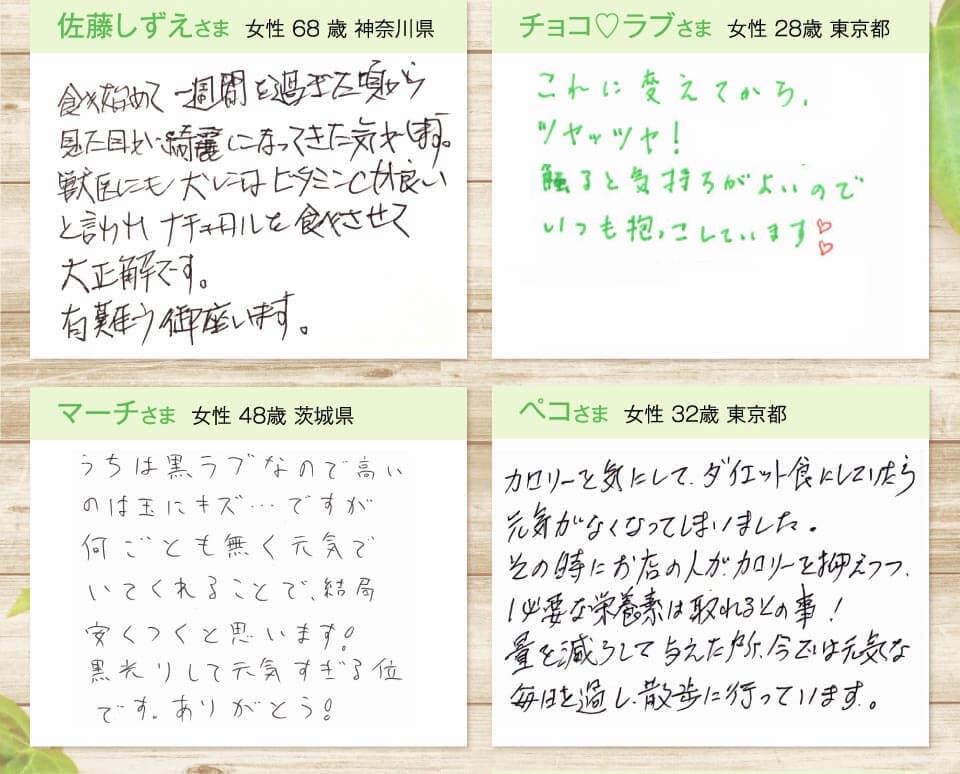 佐藤しずえさま 女性 68 歳 神奈川県
食べ始めて 一週間を過ぎた頃から
見た目が綺麗になってきた気がします。
獣医にも犬にはビタミンCが良い
と言われ ナチュロルを食べさせて
大正解です。
有難う御座います。
チョコ♡ラブさま 女性 28歳 東京都
これに変えてから、
ツヤッツヤ!
触ると気持ちがよいので
いつも抱っこしています♡♡
マーチさま 女性 48歳 茨城県
うちは黒ラブなので高い
のは玉にキズ…ですが
何ごとも無く元気で
いてくれることで、結局
安くつくと思います!
黒光りして元気すぎる位
です。ありがとう!
ペコさま 女性 32歳 東京都
カロリーを気にして、ダイエット食にしていたら
元気がなくなってしまいました。
その時にお店の人がカロリーを抑えつつ、
必要な栄養素は取れるとの事!
量を減らして与えた所、今では元気な
毎日を過し、散歩に行っています。